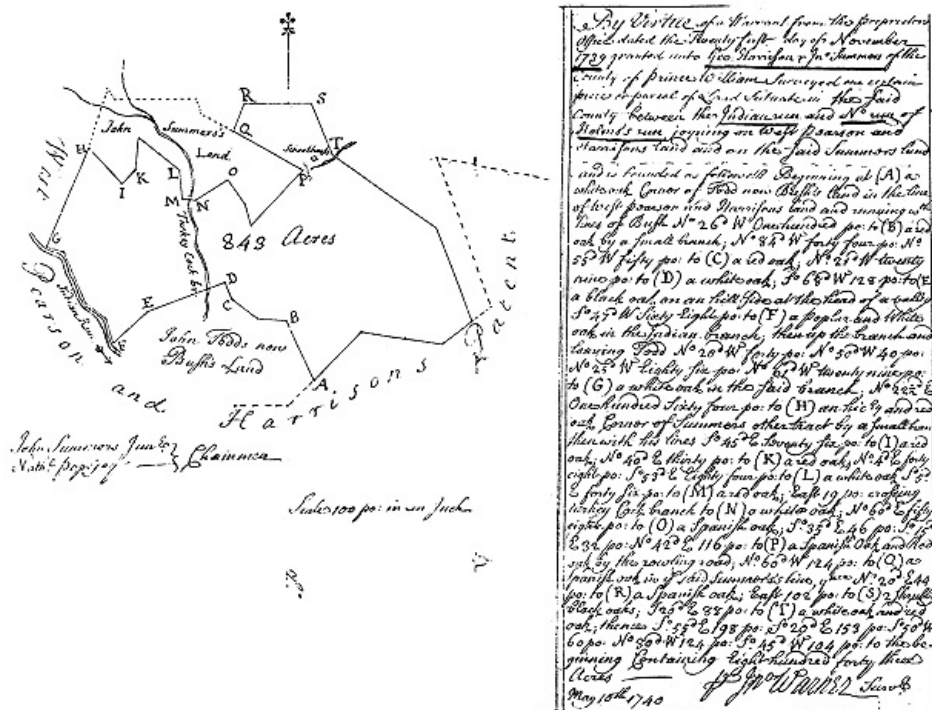 R
S
Q
T
P
John
Summers's
Land
H
I
K
L
M
N
O
843 Acres
G
Indian Run
E
D
C
B
A
John Todds now
Bush's Land
West Pearson and Harrisons Patent
John Summers Junr
Chainmen
Scale 100 po: in an Inch
By Virtue of a Warrant from the proprietors
Office dated the Twenty first day of November
1739 granted unto Geo. Harrison & Jno Summers of the
County of Prince William Surveyed one certain
piece or parcel of Land Situate in the said
County between the Indian run and No run of
Holmes run joyning on West pearson and
Harrisons land and on the said Summers land
and is bounded as followeth Beginning at (A) a
white oak Corner of Todd now Bush's land in the line
of West pearson and Harrisons land and running wth
lines of Bush No 26d W One hundred po: to (B) a red
oak by a small branch; No 84d W forty four po: No
55d W fifty po: to (C) a red oak; No 21d W twenty
nine po: to (D) a white oak; So 68d W 128 po: to (E)
a black oak on an hill side at the head of a valley
So 45d W Sixty Eight po: to (F) a poplar and White
oak in the Indian branch; then up the branch and
leaving Todd No 20d W forty po: No 50d W 40 po:
No 25d W Eighty six po: No 61d W twenty nine po:
to (G) a white oak in the said branch No 22½ E
One hundred Sixty four po: to (H) an hic'ry and red
oak Corner of Summers other tract by a small bran
then with his lines So 45d E Seventy six po: to (I) a red
oak; No 40d E thirty po: to (K) a red oak; No 4d E forty
eight po: So 53d E Eighty four po: to (L) a white oak So 5d
E forty six po: to (M) a red oak; East 19 po: crossing
turkey Cock branch to (N) a white oak; No 60d E fifty
eight po: to (O) a Spanish oak; So 35d E 46 po: So 15d
E 32 po: No 42d E 116 po: to (P) a Spanish Oak and Red
oak by the rowling road; No 60d W 124 po: to (Q) a
spanish oak in ye said Summers's line, No 20d E 44
po: to (R) a Spanish oak; East 102 po: to (S) 2 Shrub
black oaks; S 26d E 88 po: to (T) a white oak and red
oak; thence So 55d E 198 po: So 20d E 153 po: So 50d W
60 po: No 80d W 124 po: So 45d W 104 po: to the be-
ginning Containing Eight hundred forty three
Acres
May 10th 1740
Jno Warner Survr